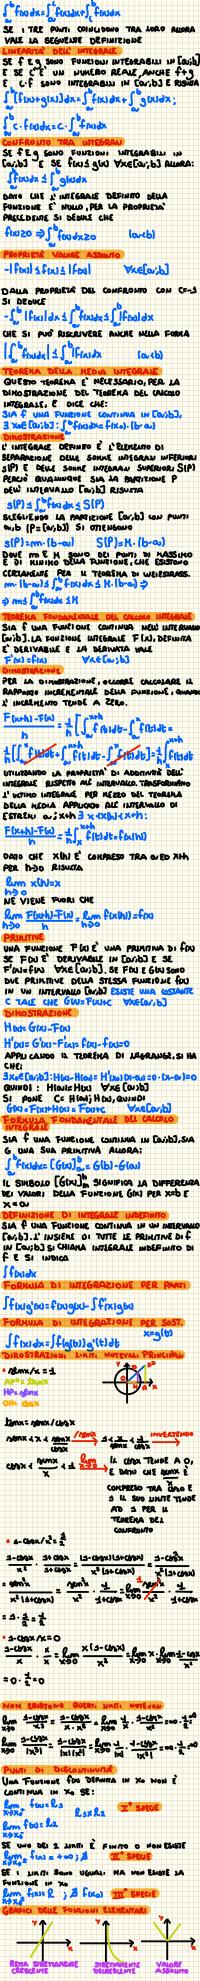 ∫ₐᵇ f(x)dx = ∫ₐᶜ f(x)dx + ∫꜀ᵇ f(x)dx
SE I TRE PUNTI COINCIDONO TRA LORO ALLORA
VALE LA SEGUENTE DEFINIZIONE
LINEARITÀ DELL' INTEGRALE
SE f E g SONO FUNZIONI INTEGRABILI IN [a;b]
E SE C E' UN NUMERO REALE, ANCHE f+g
E C·f SONO INTEGRABILI IN [a;b] E RISULTA
∫ₐᵇ [f(x)+g(x)]dx = ∫ₐᵇ f(x)dx + ∫ₐᵇ g(x)dx;
∫ₐᵇ c·f(x)dx = c·∫ₐᵇ f(x)dx
CONFRONTO TRA INTEGRALI
SE f E g SONO FUNZIONI INTEGRABILI IN
[a;b] E SE f(x)≤g(x) ∀x∈[a;b] ALLORA:
∫ₐᵇ f(x)dx ≤ ∫ₐᵇ g(x)dx
DATO CHE L'INTEGRALE DEFINITO DELLA
FUNZIONE E' NULLO, PER LA PROPRIETA'
PRECEDENTE SI DEDUCE CHE
f(x)≥0 ⇒ ∫ₐᵇ f(x)dx≥0 (a<b)
PROPRIETÀ VALORE ASSOLUTO
-|f(x)| ≤ f(x) ≤ |f(x)| ∀x∈[a;b]
DALLA PROPRIETA' DEL CONFRONTO CON C=-1
SI DEDUCE
-∫ₐᵇ |f(x)|dx ≤ ∫ₐᵇ f(x)dx ≤ ∫ₐᵇ |f(x)|dx
CHE SI PUO' RISCRIVERE ANCHE NELLA FORMA
|∫ₐᵇ f(x)dx| ≤ ∫ₐᵇ |f(x)|dx (a<b)
TEOREMA DELLA MEDIA INTEGRALE
QUESTO TEOREMA E' NECESSARIO, PER LA
DIMOSTRAZIONE DEL TEOREMA DEL CALCOLO
INTEGRALE, E DICE CHE:
SIA f UNA FUNZIONE CONTINUA IN [a;b],
∃ x₀∈[a;b]: ∫ₐᵇ f(x)dx = f(x₀)·(b-a)
DIMOSTRAZIONE
L' INTEGRALE DEFINITO E' L'ELEMENTO DI
SEPARAZIONE DELLE SOMME INTEGRALI INFERIORI
s(P) E DELLE SOMME INTEGRALI SUPERIORI S(P)
PERCIO' QUALUNQUE SIA LA PARTIZIONE P
DELL' INTERVALLO [a;b] RISULTA
s(P) ≤ ∫ₐᵇ f(x)dx ≤ S(P)
SCEGLIENDO LA PARTIZIONE [a;b] CON PUNTI
a,b (P=[a;b]) SI OTTENGONO
s(P)=m·(b-a) S(P)=M·(b-a)
DOVE m E M SONO DEI PUNTI DI MASSIMO
E DI MINIMO DELLA FUNZIONE, CHE ESISTONO
CERTAMENTE PER IL TEOREMA DI WEIESTRASS.
m·(b-a) ≤ ∫ₐᵇ f(x)dx ≤ M·(b-a) ⇒
⇒ m ≤ ∫ₐᵇ f(x)dx ≤ M
TEOREMA FONDAMENTALE DEL CALCOLO INTEGRALE
SIA f UNA FUNZIONE CONTINUA NELL' INTERVALLO
[a;b]. LA FUNZIONE INTEGRALE F(x), DEFINITA
E' DERIVABILE E LA DERIVATA VALE
F'(x)=f(x) ∀x∈[a;b]
DIMOSTRAZIONE
PER LA DIMOSTRAZIONE, OCCORRE CALCOLARE IL
RAPPORTO INCREMENTALE DELLA FUNZIONE, QUANDO
L' INCREMENTO TENDE A ZERO.
UTILIZZANDO LA PROPRIETA' DI ADDITIVITÀ DELL'
INTEGRALE RISPETTO ALL' INTERVALLO, TRASFORMIAMO
L'ULTIMO INTEGRALE PER MEZZO DEL TEOREMA
DELLA MEDIA APPLICATO ALL' INTERVALLO DI
ESTREMI x; x+h ∃ x<x(h)<x+h:
DATO CHE x(h) E' COMPRESO TRA x ED x+h
PER h→0 RISULTA
lim x(h)=x
h→0
NE VIENE FUORI CHE
lim F(x+h)-F(x) / h = lim f(x(h)) = f(x)
PRIMITIVE
UNA FUNZIONE F(x) E' UNA PRIMITIVA DI f(x)
SE F(x) E' DERIVABILE IN [a;b] E SE
F'(x)=f(x) ∀x∈[a;b]. SE F(x) E G(x) SONO
DUE PRIMITIVE DELLA STESSA FUNZIONE f(x)
IN UN INTERVALLO [a;b] ESISTE UNA COSTANTE
C TALE CHE G(x)=F(x)+C ∀x∈[a;b]
DIMOSTRAZIONE
H(x)=G(x)-F(x)
H'(x)=G'(x)-F'(x)=f(x)-f(x)=0
APPLICANDO IL TEOREMA DI LAGRANGE, SI HA
CHE:
∃ x₀∈[a;b]: H(x)-H(a)=H'(x₀)(x-a)=0·(x-a)=0
QUINDI: H(a)=H(x) ∀x∈[a;b]
SI PONE C=H(a)=H(x), QUINDI
G(x)=F(x)+H(x)=F(x)+c ∀x∈[a;b]
FORMULA FONDAMENTALE DEL CALCOLO
INTEGRALE
SIA f UNA FUNZIONE CONTINUA IN [a;b], SIA
G UNA SUA PRIMITIVA ALLORA:
∫ₐᵇ f(x)dx = [G(x)]ₐᵇ = G(b)-G(a)
IL SIMBOLO [G(x)]ₐᵇ SIGNIFICA LA DIFFERENZA
DEI VALORI DELLA FUNZIONE G(x) PER x=b E
x=a
DEFINIZIONE DI INTEGRALE INDEFINITO
SIA f UNA FUNZIONE CONTINUA IN UN INTERVALLO
[a;b]. L' INSIEME DI TUTTE LE PRIMITIVE DI f
IN [a;b] SI CHIAMA INTEGRALE INDEFINITO DI
f E SI INDICA
∫f(x)dx
FORMULA DI INTEGRAZIONE PER PARTI
∫f(x)g'(x)=f(x)g(x)-∫f'(x)g(x)
FORMULA DI INTEGRAZIONE PER SOST.
x=g(t)
∫f(x)dx=∫f(g(t))g'(t)dt
DIMOSTRAZIONI LIMITI NOTEVOLI PRINCIPALI
• senx/x = 1
tanx = senx/cosx
INVERTENDO
IL cosx TENDE A 0,
E DATO CHE senx/x E'
COMPRESO TRA cosx E
1 IL SUO LIMITE TENDE
AD 1 PER IL
TEOREMA DEL
CONFRONTO
• 1-cosx/x² = 1/2
= 1·1/2 = 1/2
• 1-cosx/x = 0
= 0·1/2 = 0
NON ESISTONO QUESTI LIMITI NOTEVOLI
PUNTI DI DISCONTINUITA'
UNA FUNZIONE f(x) DEFINITA IN x₀ NON E'
CONTINUA IN x₀ SE:
lim f(x)=l₁
l₁≠l₂
I° SPECIE
lim f(x)=l₂
SE UNO DEI 2 LIMITI E' FINITO O NON ESISTE
lim f(x)=+∞; ∄
II° SPECIE
SE I LIMITI SONO UGUALI MA NON ESISTE LA
FUNZIONE IN x₀
lim f(x)=l; ∄ f(x₀)
III° SPECIE
GRAFICI DELLE FUNZIONI ELEMENTARI
RETTA STRETTAMENTE
CRESCENTE
STRETTAMENTE
DECRESCENTE
VALORE
ASSOLUTO